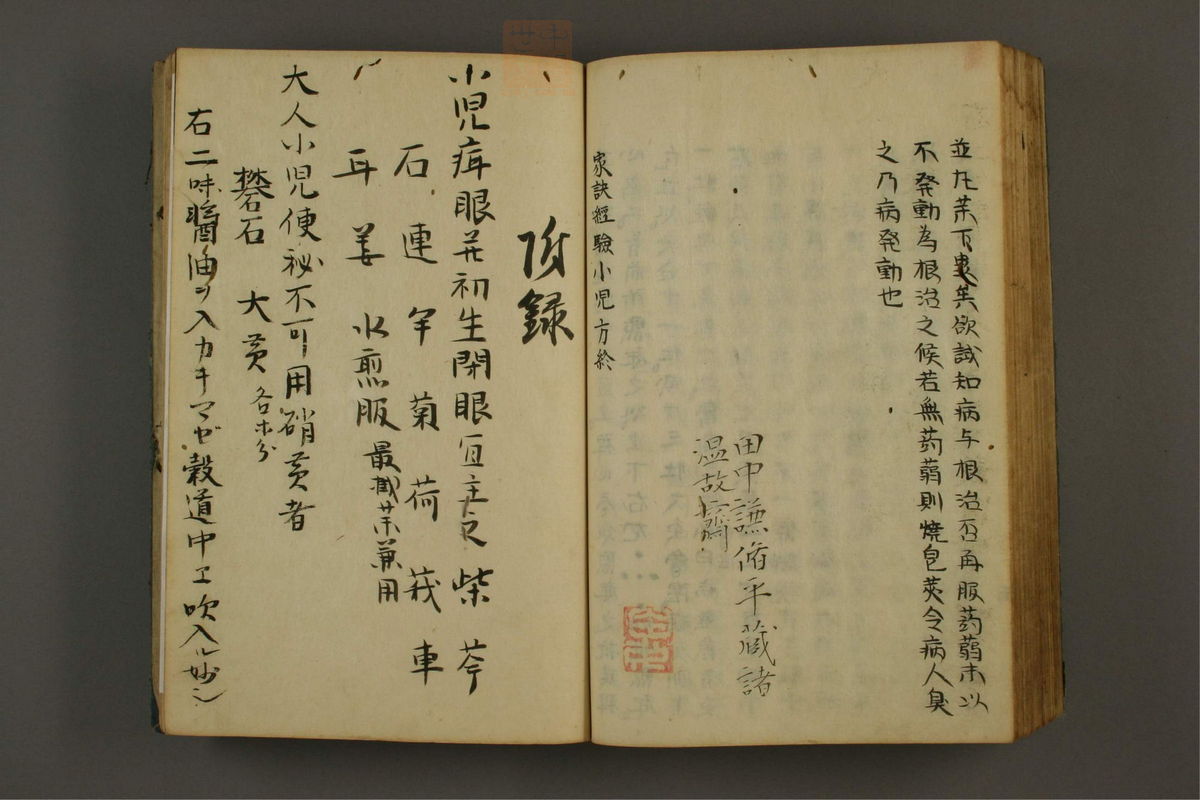 並左茱下裏茱欲試知病与根治否再服蒟蒻末以
不発動為根治之候若無蒟蒻則焼皂莢令病人臭
之乃病発動也
田中謙脩平蔵諸
温故齋
家訣経驗小児方終
附録
小児疳眼并初生閉眼宜主之 柴 芩
石 連 芉 菊 荷 莪 車
耳 姜 水煎服
大人小児便秘不可用硝黄者
礬石 大黄 各ホ分
右二味醬油ヲ入カキマゼ穀道中エ吹入ル妙シ